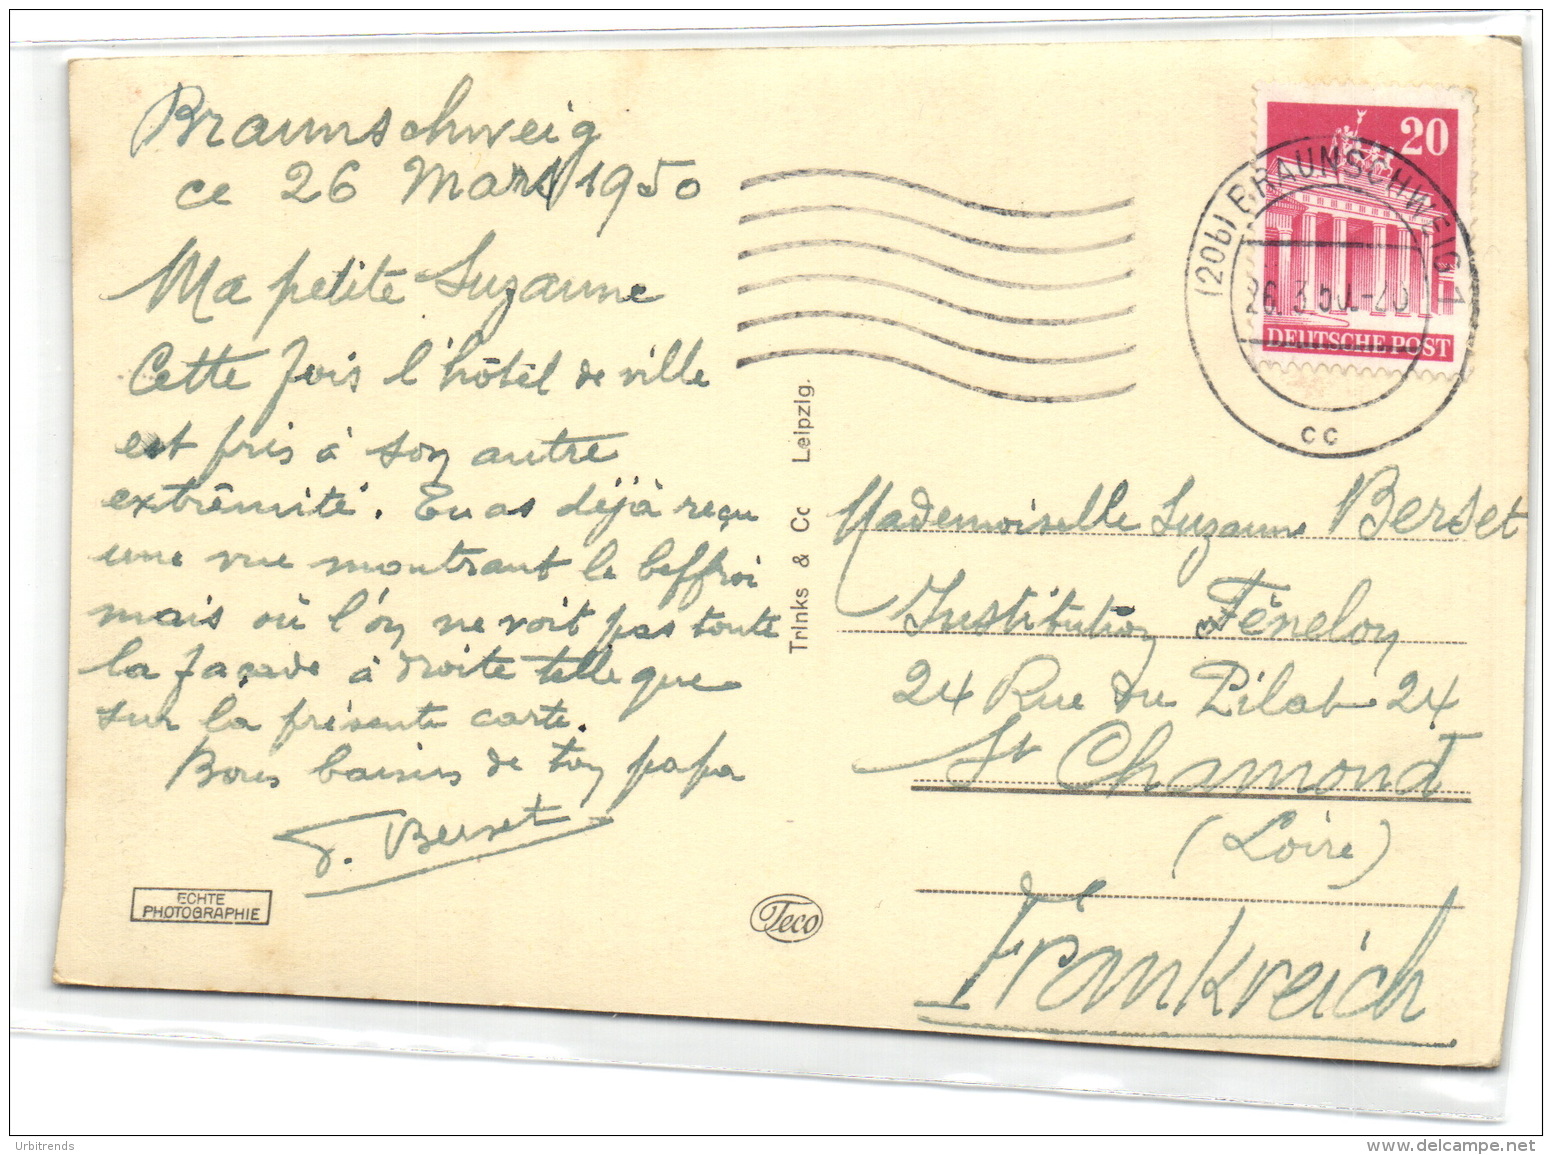 Braunschweig
ce 26 Mars 1950
Ma petite Suzanne
Cette fois l'hôtel de ville
est pris à son autre
extrêmité. Tu as déjà reçu
une vue montrant le beffroi
mais où l'on ne voit pas toute
la façade à droite telle que
sur la présente carte.
Bons baisers de ton papa
Berset
ECHTE
PHOTOGRAPHIE
Teco
Trinks & Co Leipzig.
20
DEUTSCHE POST
(20b) BRAUNSCHWEIG 1
26.3.50.-20
cc
Mademoiselle Suzanne Berset
Institution Fénelon
24 Rue du Pilat 24
St Chamond
(Loire)
Frankreich
Urbitrends
www.delcampe.net